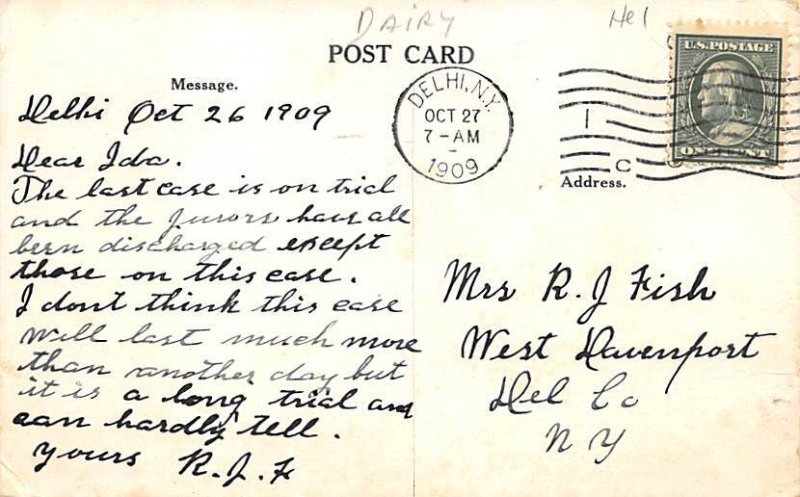 DAIRY
Hel
POST CARD
Message.
Delhi Oct 26 1909
Dear Ida.
The last case is on trial
and the jurors have all
bern discharged except
those on this case.
I dont think this case
will last much more
than another day but
it is a long trial and
can hardly tell.
yours R.J.F
DELHI, N.Y.
OCT 27
7-AM
1909
1
C
U.S. POSTAGE
ONE CENT
Address.
Mrs R. J Fish
West Davenport
Del Co
N Y